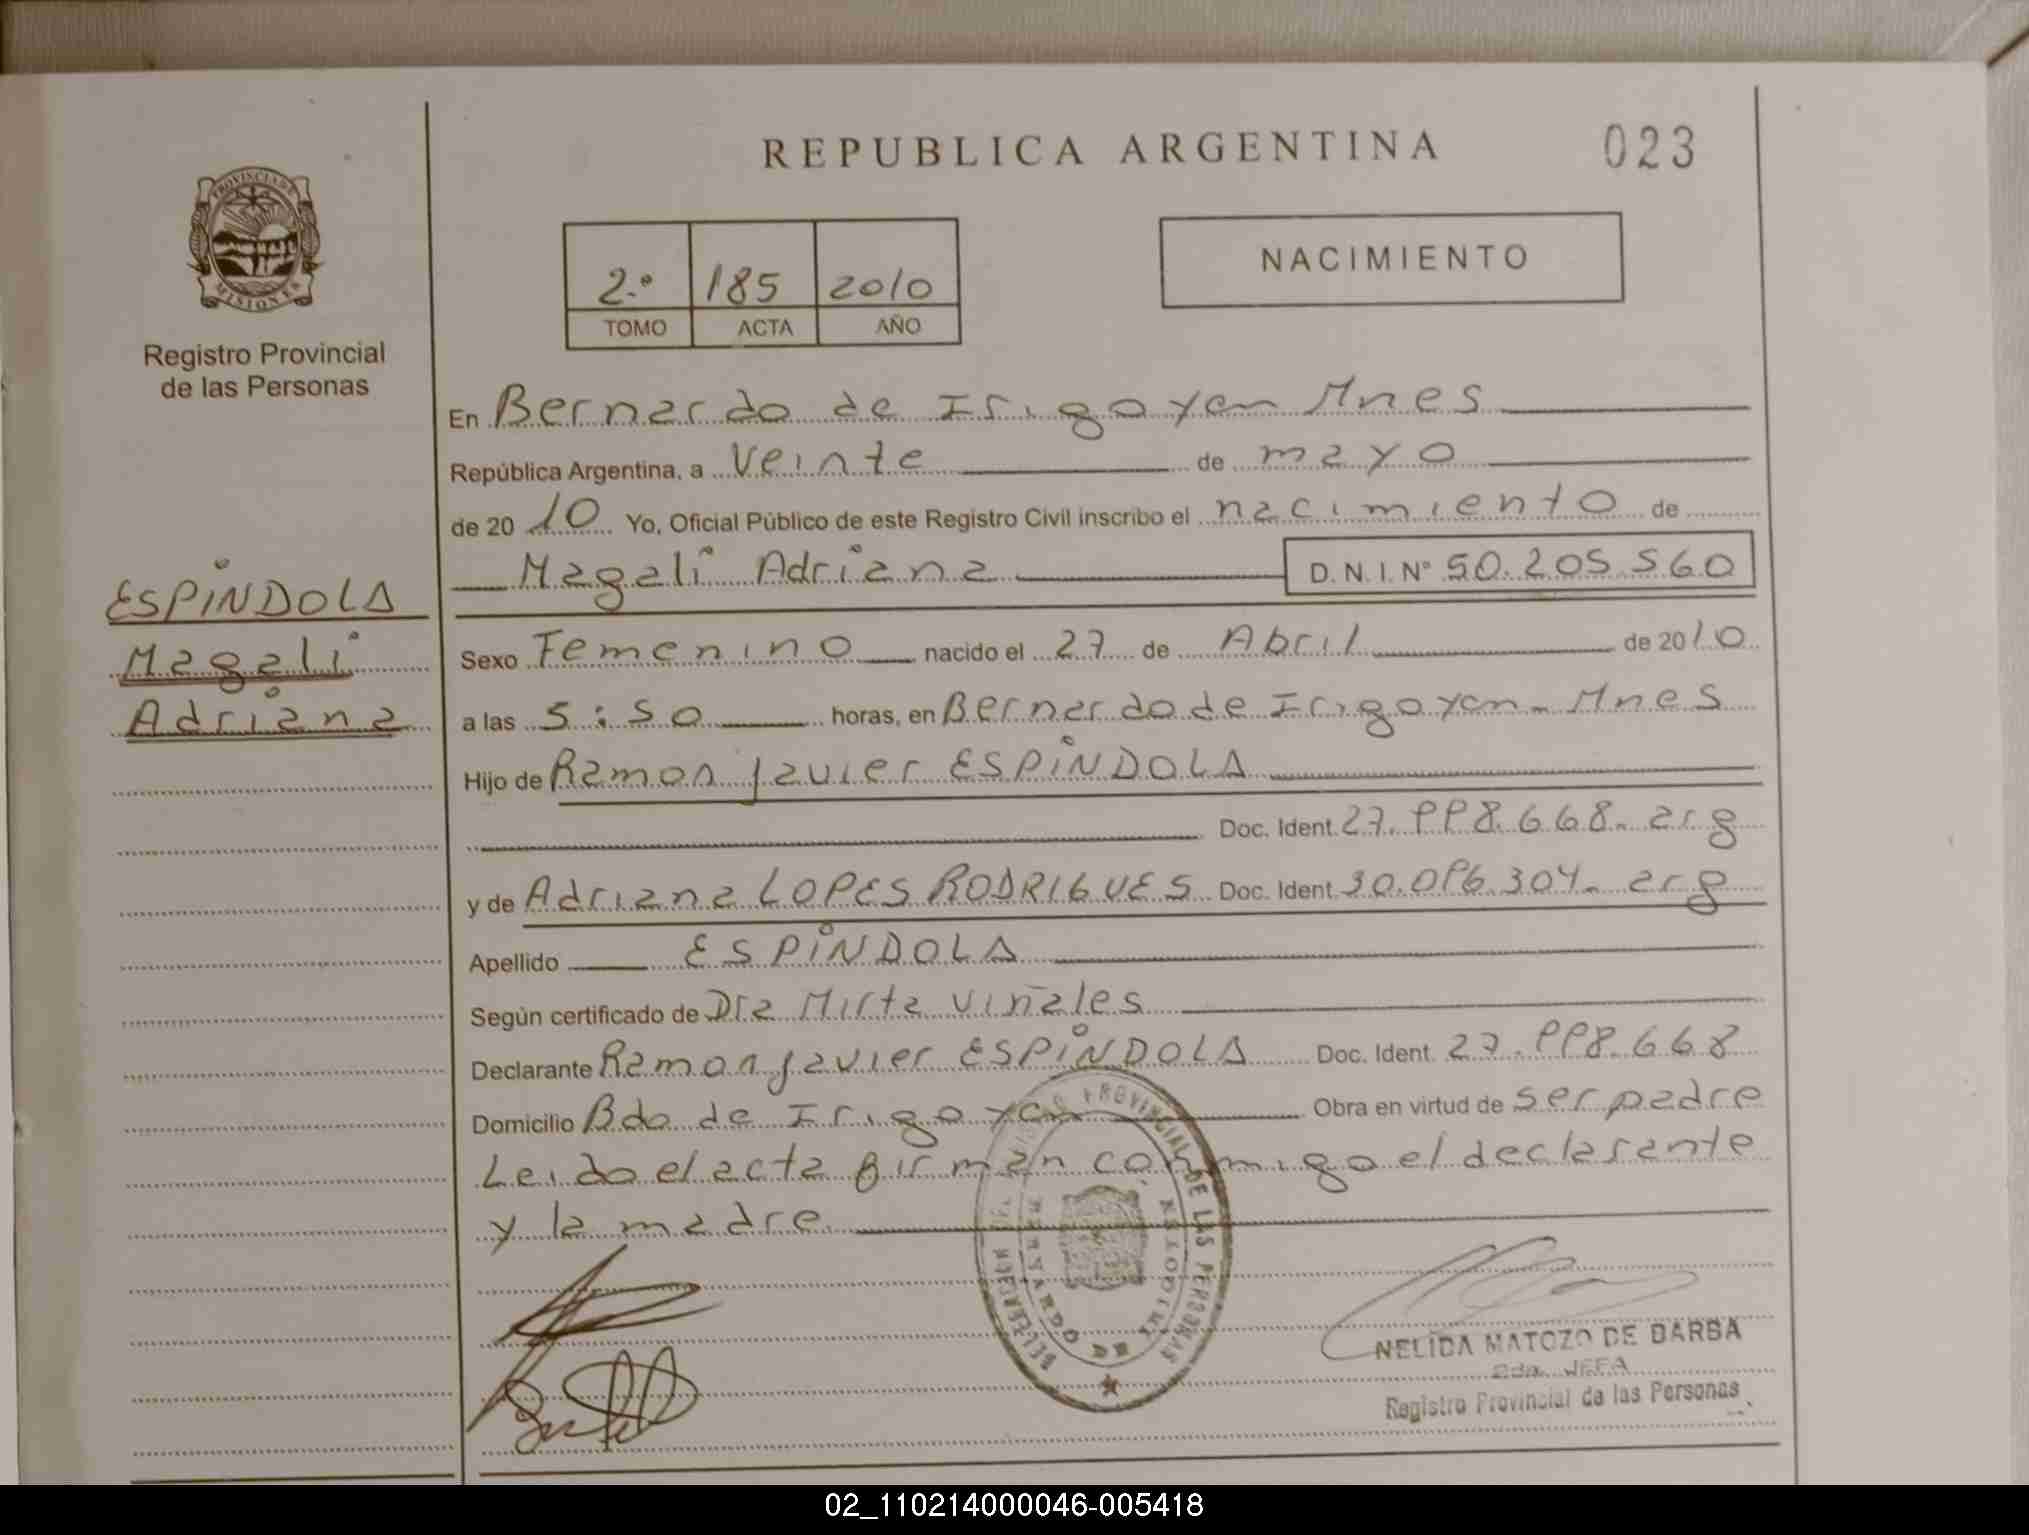 REPUBLICA ARGENTINA
023
PROVINCIA DE
MISIONES
Registro Provincial
de las Personas
2.º 185 2010
TOMO ACTA AÑO
NACIMIENTO
En Bernardo de Irigoyen Mnes
República Argentina, a Veinte de mayo
de 2010 Yo, Oficial Público de este Registro Civil inscribo el nacimiento de
Magali Adriana D.N.I. Nº 50.205.560
ESPíNDOLA
Magali
Adriana
Sexo Femenino nacido el 27 de Abril de 2010
a las 5:50 horas, en Bernardo de Irigoyen - Mnes
Hijo de Ramon Javier ESPíNDOLA
Doc. Ident. 27.998.668 - arg
y de Adriana LOPES RODRIGUES Doc. Ident. 30.096.304 - arg
Apellido ESPíNDOLA
Según certificado de Dra Mirta Viñales
Declarante Ramon Javier ESPíNDOLA Doc. Ident. 27.998.668
Domicilio Bdo de Irigoyen Obra en virtud de ser padre
Leido el acta firman conmigo el declarante
y la madre
PROVINCIAL DE LAS PERSONAS
BERNARDO DE
NELIDA MATOZO DE DARBA
2da. JEFA
Registro Provincial de las Personas
02_110214000046-005418